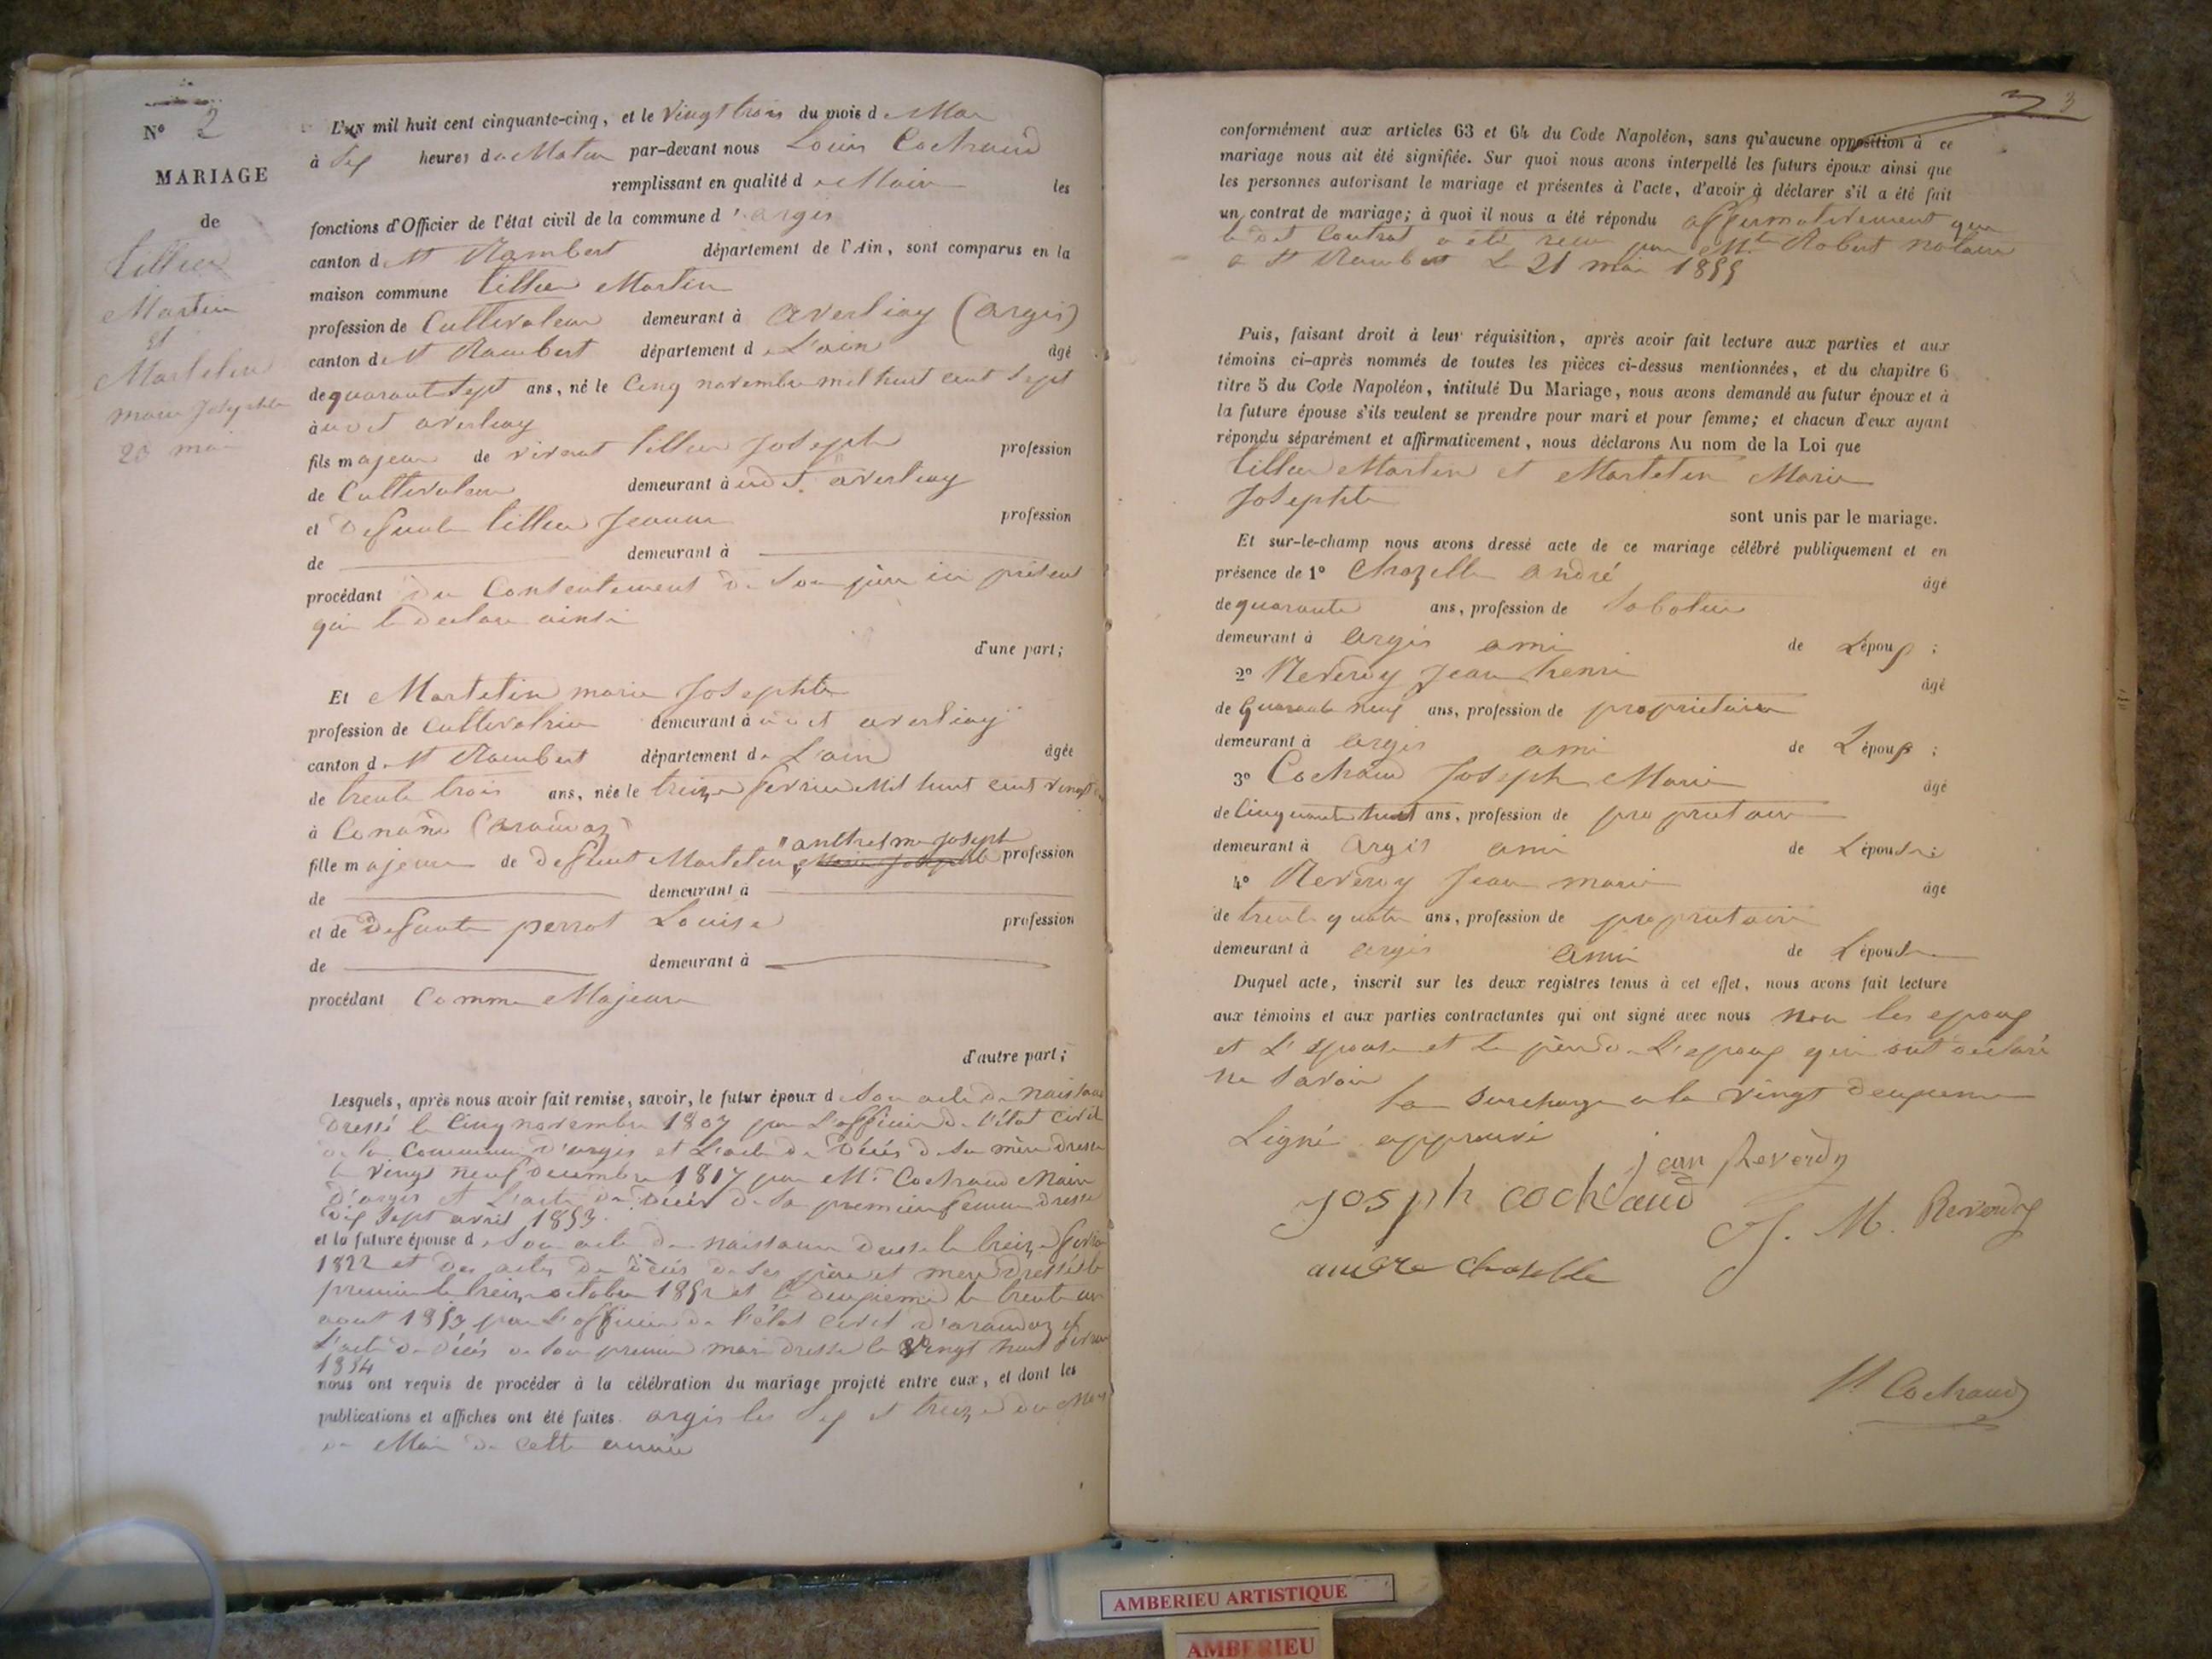 N° 2
MARIAGE
de
tillier
Martin
et
Martelin
marie Josephte
23 mai
L'AN mil huit cent cinquante-cinq, et le vingt trois du mois de Mai
à six heures du Matin par-devant nous Louis Cochaud
remplissant en qualité de Maire les
fonctions d'Officier de l'état civil de la commune d'argis
canton de St Rambert département de l'Ain, sont comparus en la
maison commune tillier Martin
profession de Cultivateur demeurant à averliay (argis)
canton de St Rambert département de L'ain âgé
de quarante sept ans, né le Cinq novembre mil huit cent sept
à udit averliay
fils majeur de vivant tillier Joseph profession
de Cultivateur demeurant à udit averliay
et defunte tillier Jeanne profession
de demeurant à
procédant du Consentement de Son père ici présent
qui le declare ainsi
d'une part;
Et Martelin marie Josephte
profession de cultivatrice demeurant à udit averliay
canton de St Rambert département de L'ain âgée
de trente trois ans, née le treize fevrier Mil huit cent vingt
à Conand (arandaz)
anthelme Joseph
fille majeure de defunt Martelin profession
de demeurant à
et de defunte perrot Louise profession
de demeurant à
procédant Comme Majeure
d'autre part;
Lesquels, après nous avoir fait remise, savoir, le futur époux de Son acte de naissance
dressé le Cinq novembre 1807 par L'officier de l'état civil
de la Commune d'argis et L'acte de décés de Sa mère dressé
le vingt neuf decembre 1817 par Mr Cochaud Maire
d'argis et L'acte de décés de Sa premiere femme dressé
dix Sept avril 1853.
et la future épouse de Son acte de naissance dressé le treize fevrier
1822 et des actes de décés de Ses père et mere dressés le
premier le treize octobre 1852 et le deuxieme le trente un
aout 1853 par L'officier de l'état civil d'arandaz et
L'acte de décés de Son premier mari dressé le vingt huit fevrier
1854
nous ont requis de procéder à la célébration du mariage projeté entre eux, et dont les
publications et affiches ont été faites argis les Six et treize du Mois
de Mai de cette année
3
conformément aux articles 63 et 64 du Code Napoléon, sans qu'aucune opposition à ce
mariage nous ait été signifiée. Sur quoi nous avons interpellé les futurs époux ainsi que
les personnes autorisant le mariage et présentes à l'acte, d'avoir à déclarer s'il a été fait
un contrat de mariage; à quoi il nous a été répondu affirmativement que
le dit Contrat a été recu par Mtre Robert notaire
a St Rambert Le 21 mai 1855
Puis, faisant droit à leur réquisition, après avoir fait lecture aux parties et aux
témoins ci-après nommés de toutes les pièces ci-dessus mentionnées, et du chapitre 6
titre 5 du Code Napoléon, intitulé Du Mariage, nous avons demandé au futur époux et à
la future épouse s'ils veulent se prendre pour mari et pour femme; et chacun d'eux ayant
répondu séparément et affirmativement, nous déclarons Au nom de la Loi que
tillier Martin et Martelin Marie
Josephte
sont unis par le mariage.
Et sur-le-champ nous avons dressé acte de ce mariage célébré publiquement et en
présence de 1° Chazelle andré âgé
de quarante ans, profession de Sabotier
demeurant à argis ami de L'époux;
2° Reverdy Jean henri âgé
de quarante neuf ans, profession de proprietaire
demeurant à argis ami de L'époux;
3° Cochaud Joseph Marie âgé
de Cinquante huit ans, profession de proprietaire
demeurant à argis ami de L'épouse;
4° Reverdy Jean marie âgé
de trente quatre ans, profession de proprietaire
demeurant à argis ami de L'épouse
Duquel acte, inscrit sur les deux registres tenus à cet effet, nous avons fait lecture
aux témoins et aux parties contractantes qui ont signé avec nous non les epoux
et L'epouse et le père de L'epoux qui ont declaré
ne Savoir
La Surcharge a la vingt deuxieme
Ligne approuvé
jean Reverdy
Joseph cochaud
J. M. Reverdy
andre chazelle
Lt Cochaud
AMBERIEU ARTISTIQUE
AMBERIEU